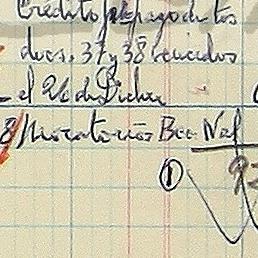 Crédito p/pago de los
docs. 37 y 38 vencidos
el 26 de Dicbre
8 Moratorias Bco Nal
①